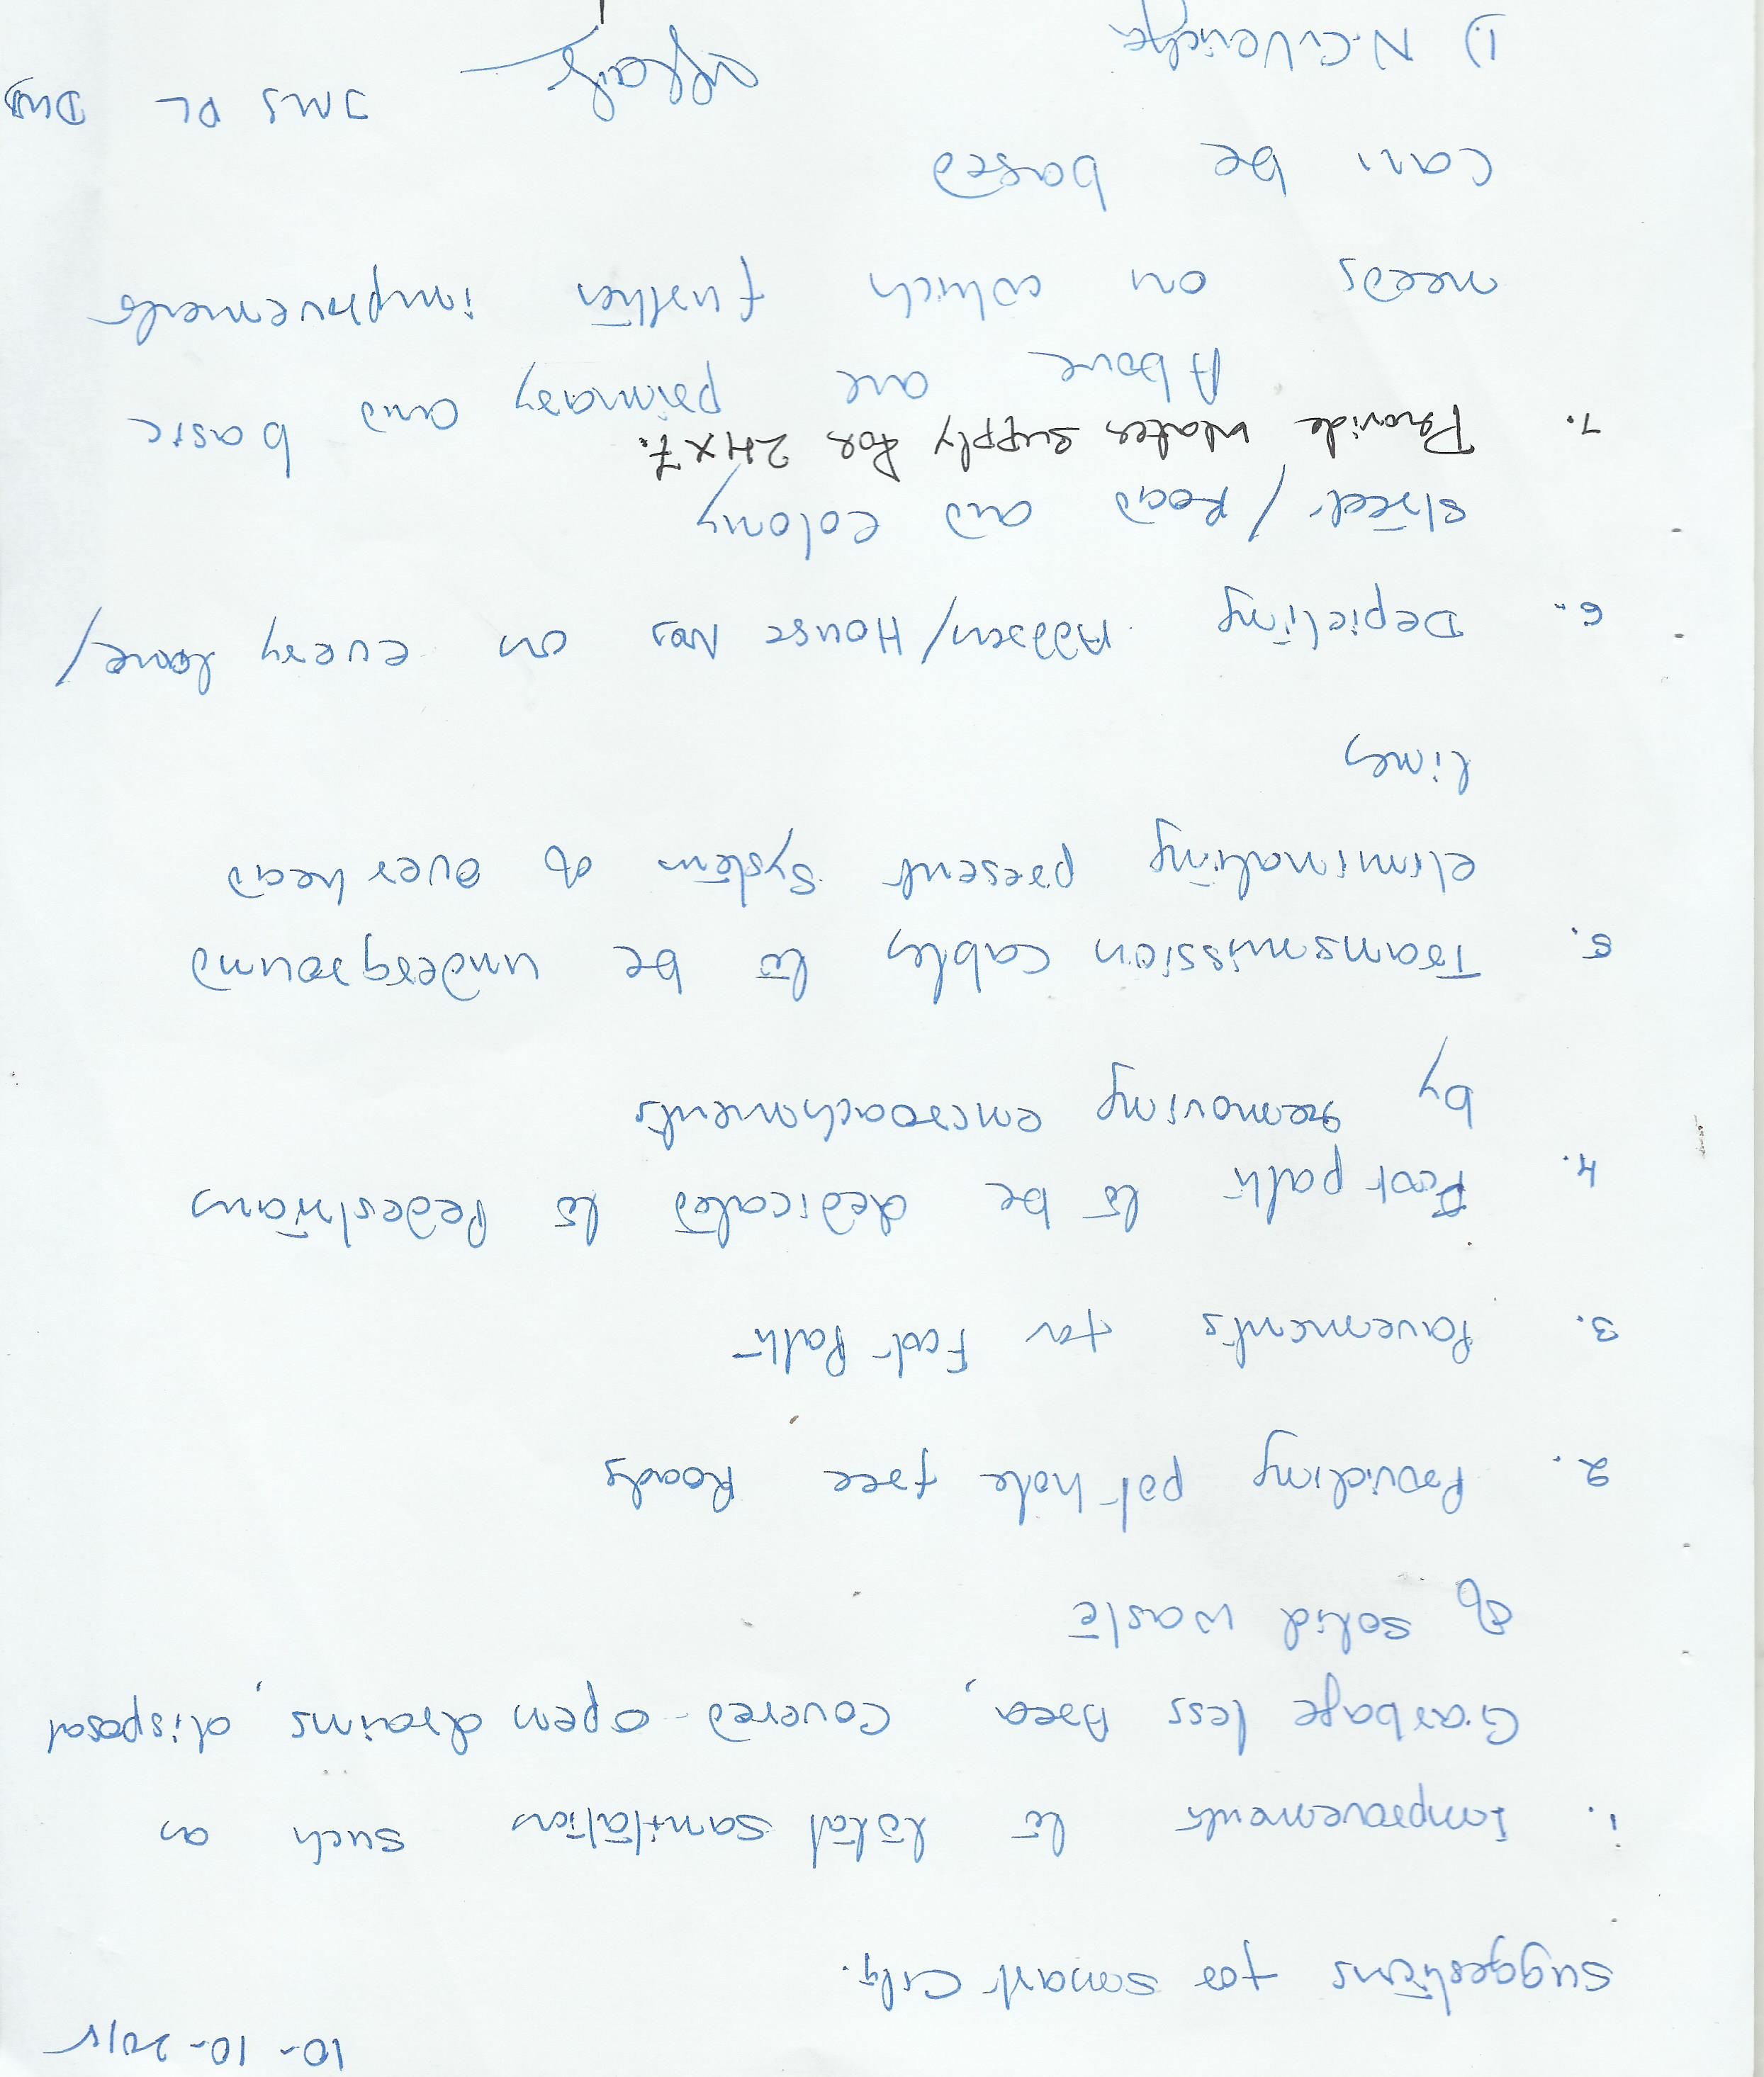 10-10-2015
Suggestions for Smart City.
1. Improvements to total sanitation such as
Garbage less Area, covered open drains, disposal
of solid waste
2. Providing pot hole free Roads
3. Pavements for Foot Path
4. Foot path to be dedicated to Pedestrians
by removing encroachments
5. Transmission cables to be underground
eliminating present system of over head
lines
6. Depicting House Nos on every lane/
street/Road and colony
7. Provide water supply for 24x7.
Above are primary and basic
needs on which further improvements
can be based
1)